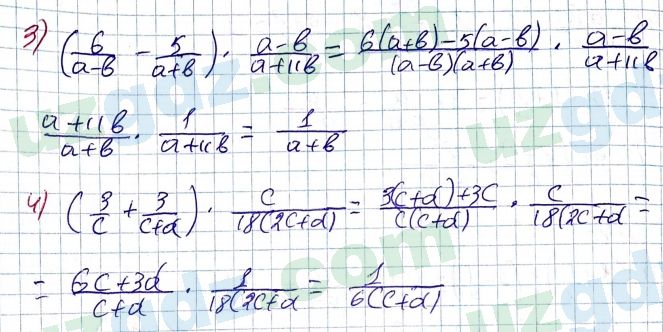 3) (6/(a-b) - 5/(a+b)) · (a-b)/(a+11b) = (6(a+b)-5(a-b))/((a-b)(a+b)) · (a-b)/(a+11b)
(a+11b)/(a+b) · 1/(a+11b) = 1/(a+b)
4) (3/c + 3/(c+d)) · c/(18(2c+d)) = (3(c+d)+3c)/(c(c+d)) · c/(18(2c+d =
= (6c+3d)/(c+d) · 1/(18(2c+d = 1/(6(c+d))